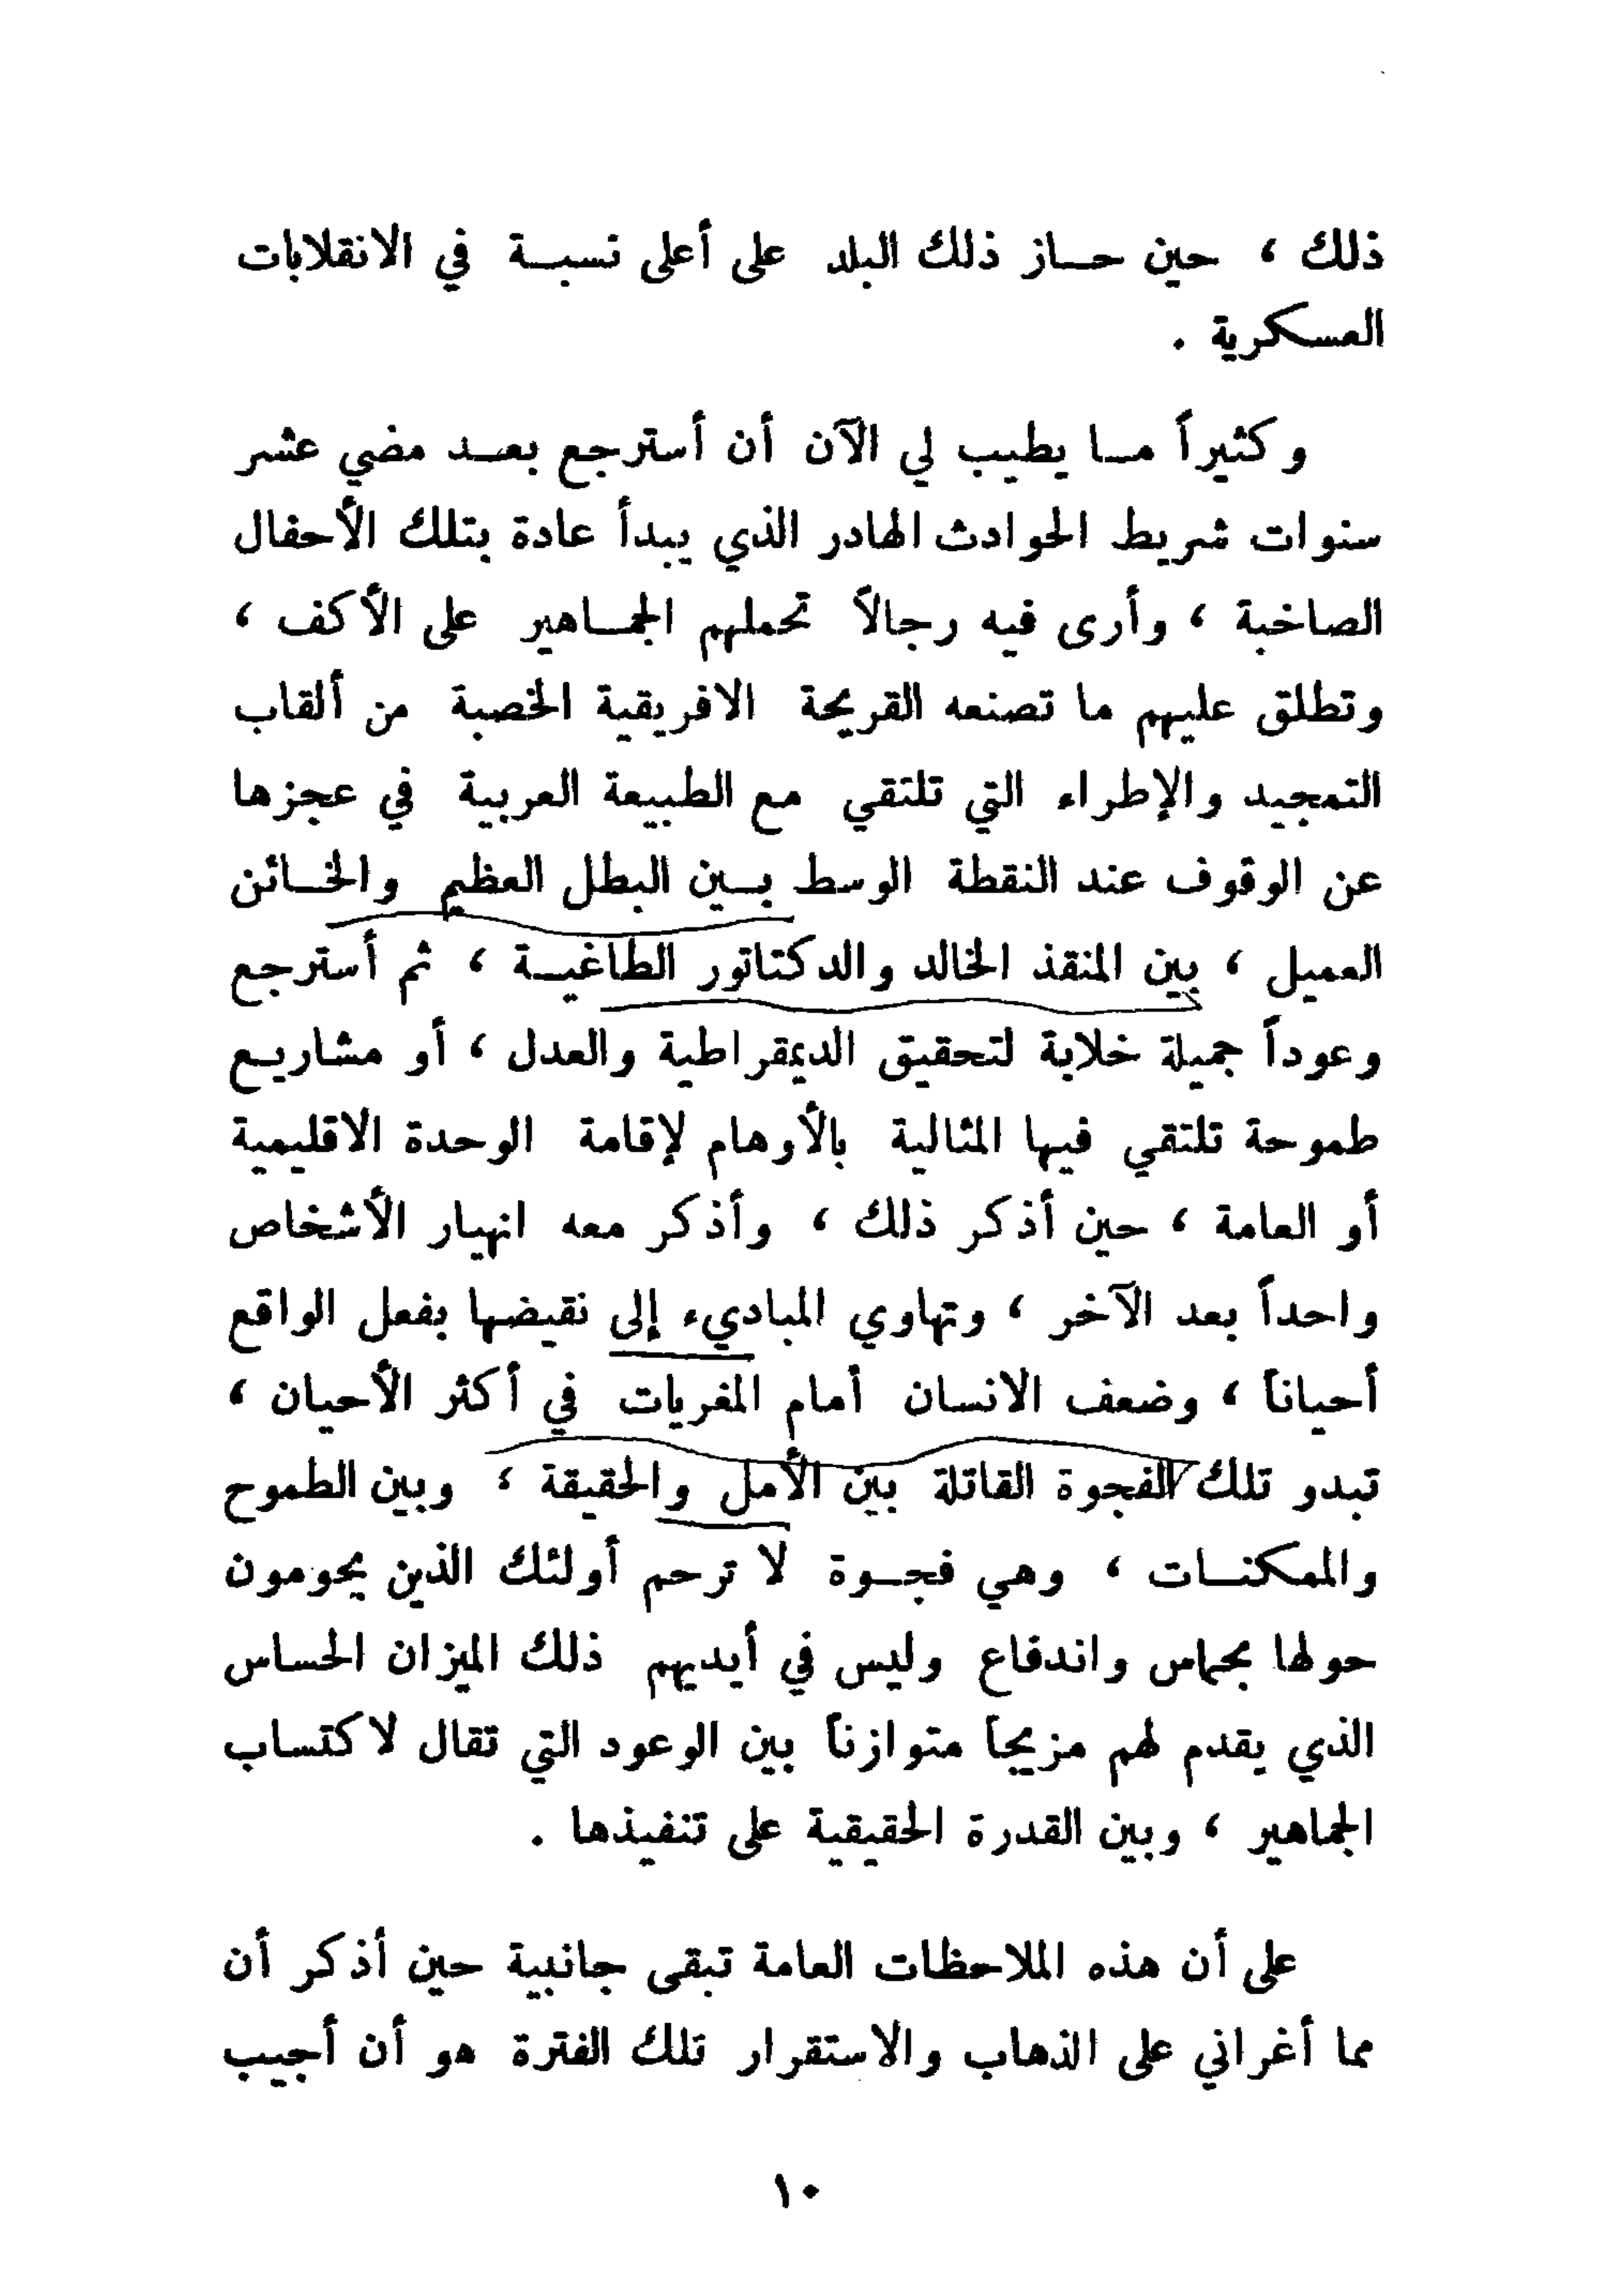 ذلك ، حين حاز ذلك البلد على أعلى نسبة في الانقلابات
العسكرية .
وكثيراً ما يطيب لي الآن أن أسترجع بعد مضي عشر
سنوات شريط الحوادث الهادر الذي يبدأ عادة بتلك الأحفال
الصاخبة ، وأرى فيه رجالاً تحملهم الجماهير على الأكف ،
وتطلق عليهم ما تصنعه القريحة الافريقية الخصبة من ألقاب
التمجيد والإطراء التي تلتقي مع الطبيعة العربية في عجزها
عن الوقوف عند النقطة الوسط بين البطل العظيم والخائن
العميل ، بين المنقذ الخالد والدكتاتور الطاغية ، ثم أسترجع
وعوداً جميلة خلابة لتحقيق الديمقراطية والعدل ، أو مشاريع
طموحة تلتقي فيها المثالية بالأوهام لإقامة الوحدة الاقليمية
أو العامة ، حين أذكر ذلك ، وأذكر معه انهيار الأشخاص
واحداً بعد الآخر ، وتهاوي المباديء إلى نقيضها بفعل الواقع
أحياناً ، وضعف الانسان أمام المغريات في أكثر الأحيان ،
تبدو تلك الفجوة القاتلة بين الأمل والحقيقة ، وبين الطموح
والممكنات ، وهي فجوة لا ترحم أولئك الذين يحومون
حولها بحماس واندفاع وليس في أيديهم ذلك الميزان الحساس
الذي يقدم لهم مزيجاً متوازناً بين الوعود التي تقال لاكتساب
الجماهير ، وبين القدرة الحقيقية على تنفيذها .
على أن هذه الملاحظات العامة تبقى جانبية حين أذكر أن
مما أغراني على الذهاب والاستقرار تلك الفترة هو أن أجيب
١٠